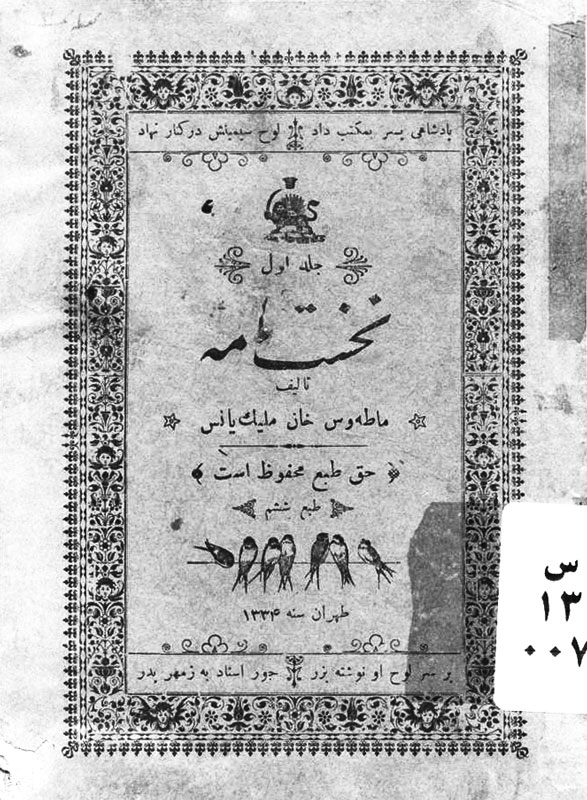 پادشاهی پسر بمکتب داد لوح سیمینش در کنار نهاد
جلد اول
نخستنامه
تالیف
ماطه وس خان ملیك یانس
حق طبع محفوظ است
طبع ششم
طهران سنه ۱۳۳۴
بر سر لوح او نوشته بزر جور استاد به زمهر پدر
س
۱۳
۰۰۷